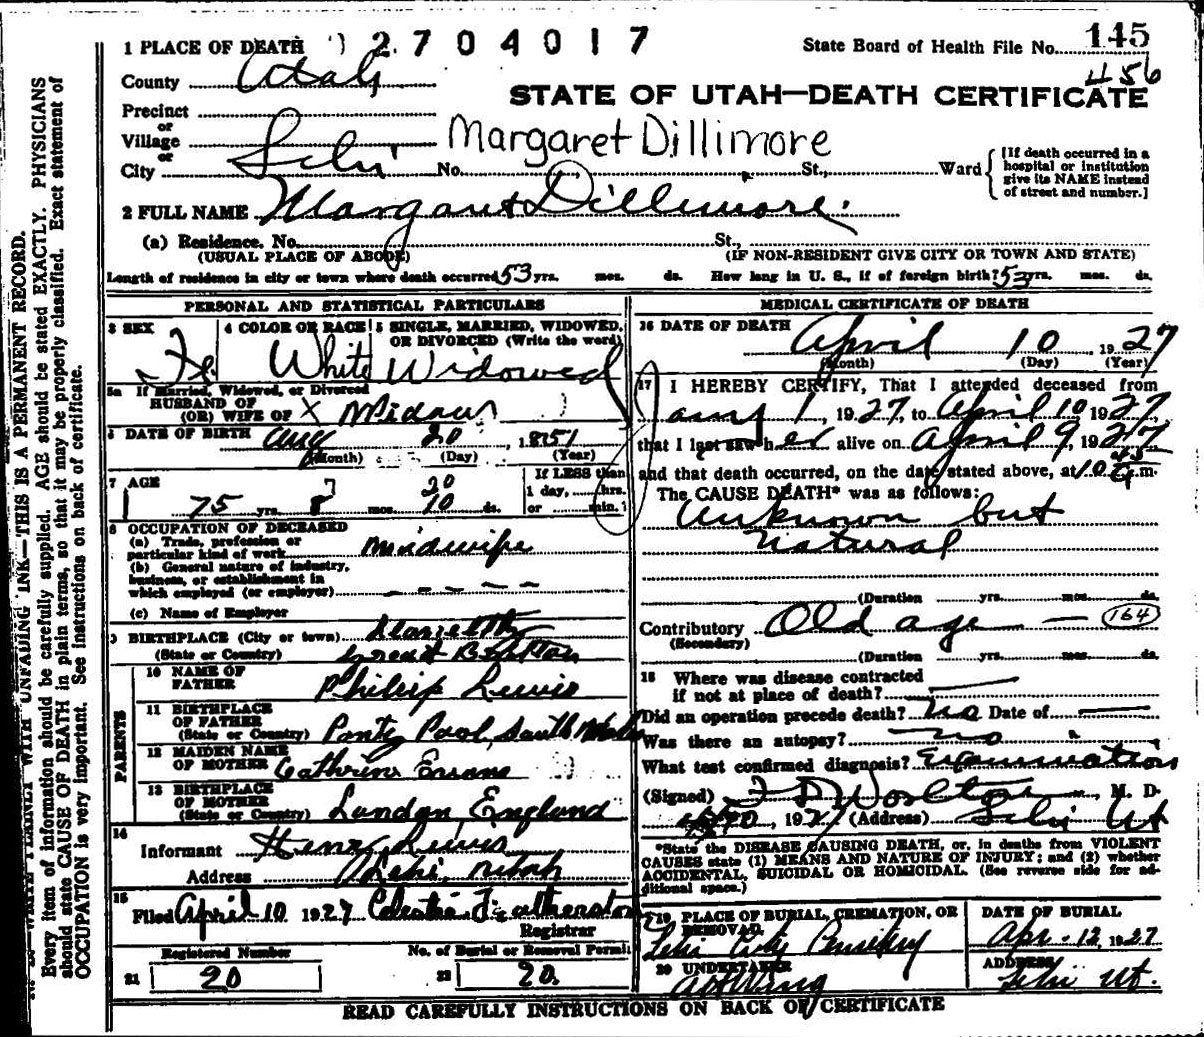 1 PLACE OF DEATH 2704017
State Board of Health File No. 145
456
County Utah
STATE OF UTAH—DEATH CERTIFICATE
Precinct
or
Village
Margaret Dillimore
or
City Lehi No. St., Ward
[If death occurred in a hospital or institution give its NAME instead of street and number.]
2 FULL NAME Margaret Dillimore.
(a) Residence. No. St.,
(USUAL PLACE OF ABODE) (IF NON-RESIDENT GIVE CITY OR TOWN AND STATE)
Length of residence in city or town where death occurred 53 yrs. mos. ds. How long in U. S., if of foreign birth? 53 yrs. mos. ds.
PERSONAL AND STATISTICAL PARTICULARS
3 SEX Fe.
4 COLOR OR RACE White
5 SINGLE, MARRIED, WIDOWED, OR DIVORCED (Write the word) Widowed
5a If Married, Widowed, or Divorced
HUSBAND OF
(OR) WIFE OF X
6 DATE OF BIRTH Aug 20, 1851
(Month) (Day) (Year)
7 AGE
7 20
75 yrs. 8 mos. 10 ds.
If LESS than
1 day, hrs.
or min.
8 OCCUPATION OF DECEASED
(a) Trade, profession or
particular kind of work Midwife
(b) General nature of industry,
business, or establishment in
which employed (or employer)
(c) Name of Employer
9 BIRTHPLACE (City or town)
(State or Country) Great Britton
PARENTS
10 NAME OF
FATHER Philip Lewis
11 BIRTHPLACE
OF FATHER
(State or Country) Ponty Pool, South Wales
12 MAIDEN NAME
OF MOTHER Cathrine Evans
13 BIRTHPLACE
OF MOTHER
(State or Country) London England
14
Informant Henry Lewis
Address Lehi, Utah
15
Filed April 10 1927 Celestia Featherston
Registrar
Registered Number
21 20
No. of Burial or Removal Permit
22 20.
MEDICAL CERTIFICATE OF DEATH
16 DATE OF DEATH April 10 1927
(Month) (Day) (Year)
17 I HEREBY CERTIFY, That I attended deceased from
Jany 1, 1927, to April 10 1927
that I last saw her alive on April 9, 1927
and that death occurred, on the date stated above, at 10 45 a m.
The CAUSE DEATH* was as follows:
Unknown but
Natural
(Duration yrs. mos. ds.
Contributory Old age — 164
(Secondary)
(Duration yrs. mos. ds.
18 Where was disease contracted
if not at place of death?
Did an operation precede death? No Date of
Was there an autopsy? no
What test confirmed diagnosis? Examination
(Signed) M. D.
192 (Address) Lehi Ut
*State the DISEASE CAUSING DEATH, or, in deaths from VIOLENT
CAUSES state (1) MEANS AND NATURE OF INJURY; and (2) whether
ACCIDENTAL, SUICIDAL OR HOMICIDAL. (See reverse side for ad-
ditional space.)
19 PLACE OF BURIAL, CREMATION, OR
REMOVAL.
Lehi City Cemetery
DATE OF BURIAL
Apr. 12, 1927
20 UNDERTAKER
Wing
ADDRESS
Lehi Ut.
READ CAREFULLY INSTRUCTIONS ON BACK OF CERTIFICATE
WRITE PLAINLY WITH UNFADING INK—THIS IS A PERMANENT RECORD.
Every item of information should be carefully supplied. AGE should be stated EXACTLY. PHYSICIANS
should state CAUSE OF DEATH in plain terms, so that it may be properly classified. Exact statement of
OCCUPATION is very important. See instructions on back of certificate.